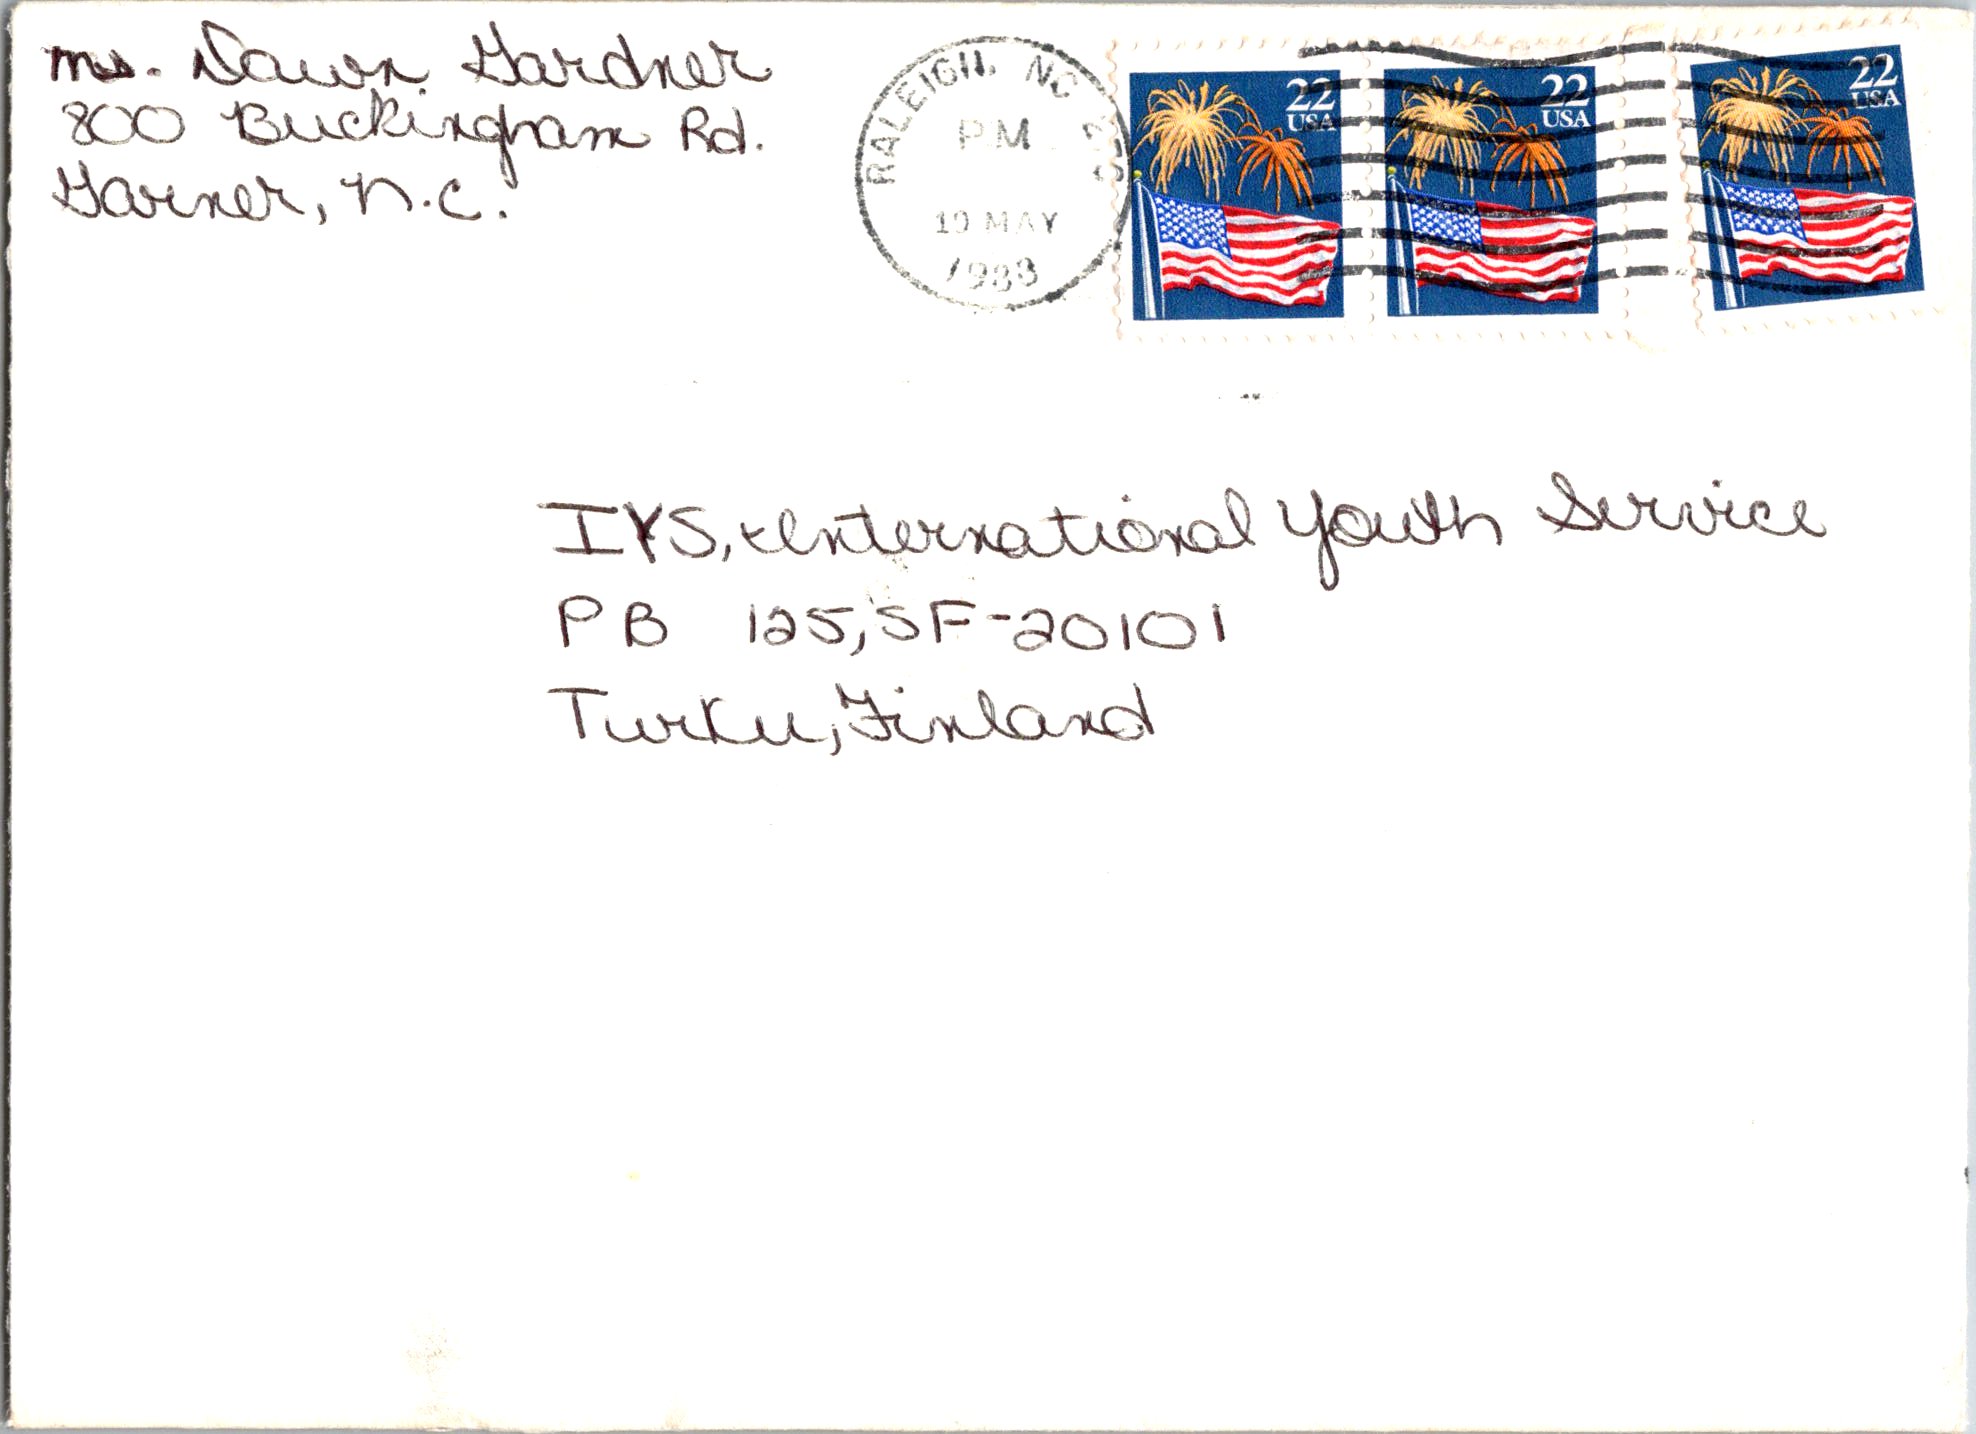 Ms. Dawn Gardner
800 Buckingham Rd.
Garner, N.C.
RALEIGH, NC
PM
19 MAY
1988
22
USA
22
USA
22
USA
IYS, International Youth Service
PB 125, SF-20101
Turku, Finland